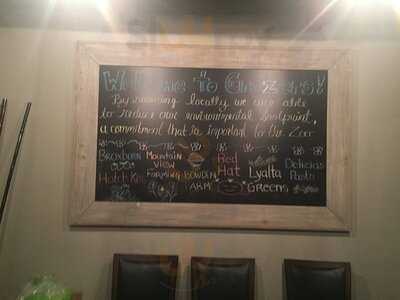 Welcome To
By sourcing locally we are able
to reduce our environmental footprint,
a commitment that is important to the Zoo
Broxburn Mountain View Farming Bowden Farm Red Hat Lyalta Greens Delicias Pasta
Hotchkiss